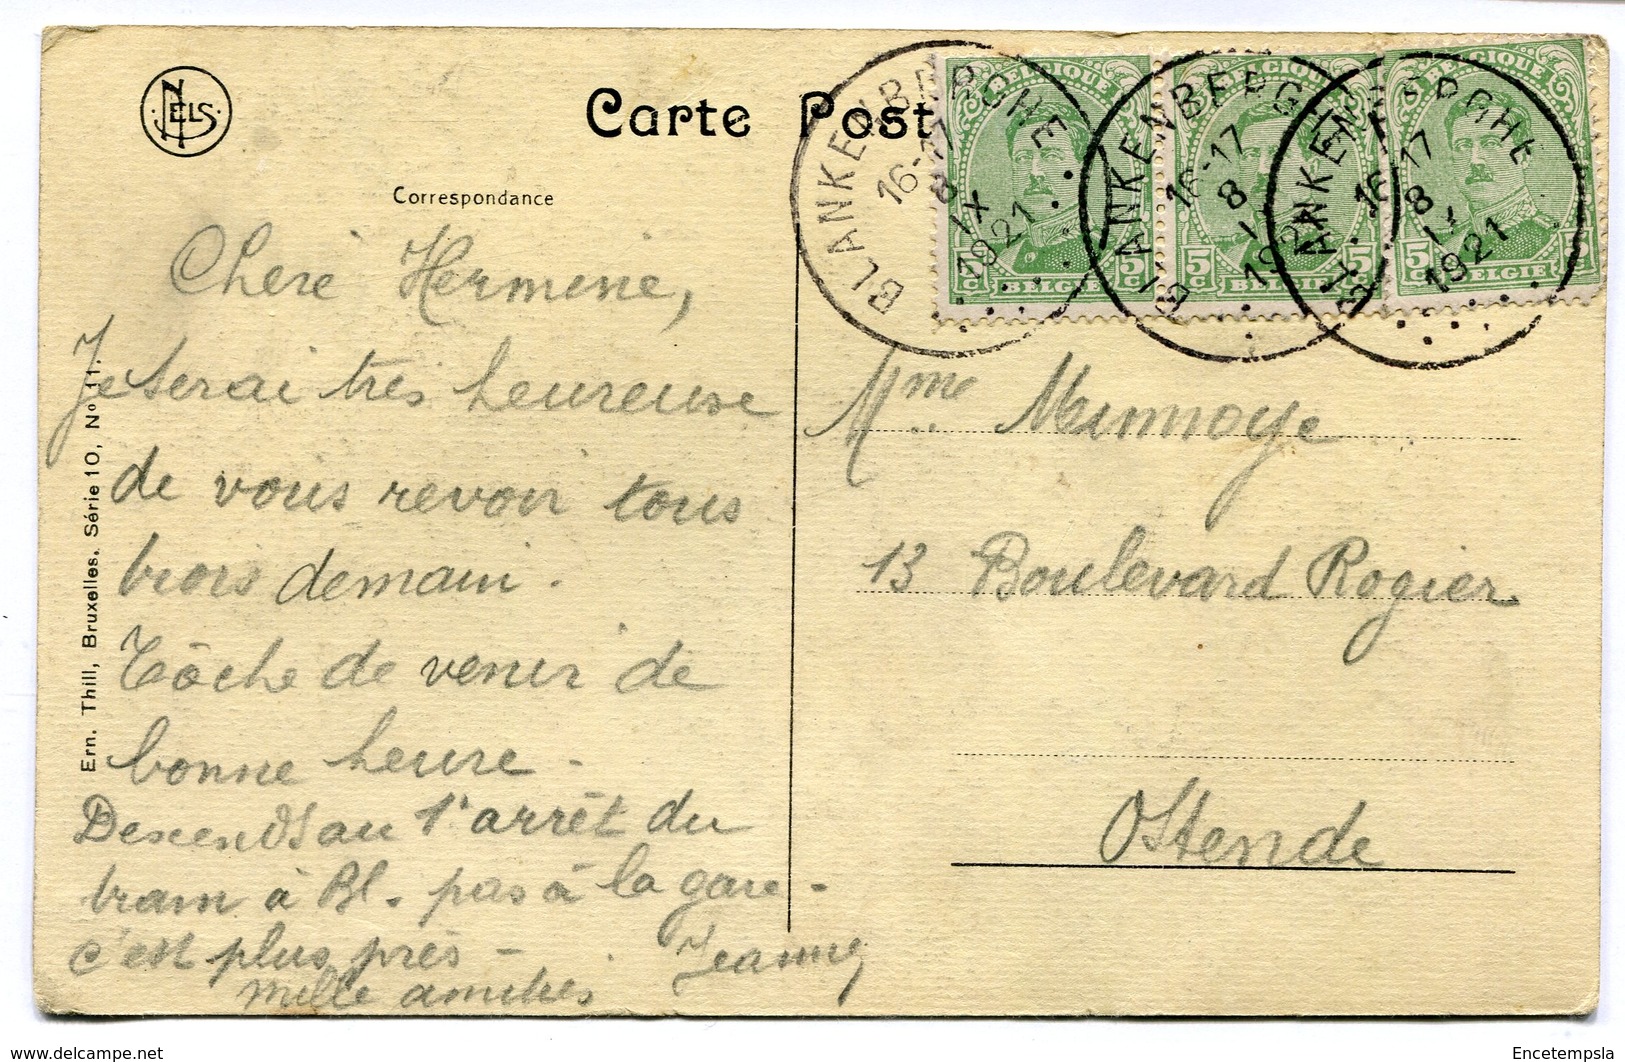 NELS
Carte Post
Correspondance
Cheré Hermine,
Je serai très heureuse
de vous revoir tous
trois demain.
Tâche de venir de
bonne heure -
Descends au 1r arrêt du
tram à Bl. pas à la gare -
c'est plus près -
mille amitiés Jeanne
Ern. Thill, Bruxelles. Série 10, No 11.
BELGIQUE BELGIQUE BELGIQUE
5 c BELGIE 5 c
5 c BELGIE 5 c
5 c BELGIE 5
BLANKENBERGHE
16-17
8
IX
1921
BLANKENBERGHE
16-17
8
1921
BLANKENBERGHE
16-17
8
1921
Mme Minnoye
13 Boulevard Rogier
Ostende
www.delcampe.net
Encetempsla